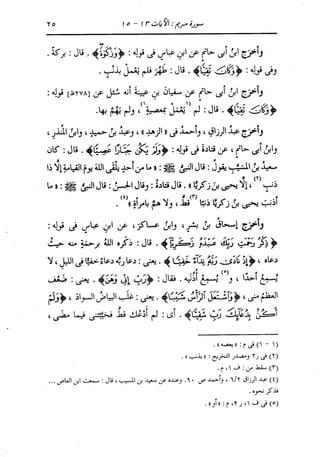 سورة مريم: الآيات ١٣ - ١٥
٢٥
وأخرج ابنُ أبى حاتمٍ عن ابنِ عباسٍ فى قولِه: ﴿وَزَكَوٰةً﴾. قال: بركةً.
وفى قولِه: ﴿وَكَانَ تَقِيًّا﴾. قال: طَهُر فلم يَعْمَلْ بذنبٍ.
وأخرَج ابنُ أبى حاتمٍ عن سفيانَ بنِ عيينةَ أنه سُئل عن [٢٧٨ظ] قولِه:
﴿وَكَانَ تَقِيًّا﴾. قال: لم (١يَعْمَلْ بمعصيةٍ١)، ولم يَهُمَّ بها.
وأخرَج عبدُ الرزاقِ، وأحمدُ فى «الزهدِ»، وعبدُ بنُ حميدٍ، وابنُ المنذرِ،
وابنُ أبى حاتمٍ، عن قتادةَ فى قولِه: ﴿وَلَمْ يَكُن جَبَّارًا عَصِيًّا﴾. قال: كان
سعيدُ بنُ المسيَّبِ يقولُ: قال النبىُّ ﷺ: «ما من أحدٍ يَلْقَى اللهَ يومَ القيامةِ إلا ذا
ذنبٍ(٢)، إلا يحيى بنَ زكريَّا». قال قتادةُ: وقال الحسنُ: قال النبىُّ ﷺ: «ما
أذنَب يحيى بنُ زكريَّا ذنبًا (٣)قطُّ، ولا همَّ بامرأةٍ»(٤).
وأخرَج إسحاقُ بنُ بشرٍ، وابنُ عساكرَ، عن ابنِ عباسٍ فى قولِه:
﴿ذِكْرُ رَحْمَتِ رَبِّكَ عَبْدَهُ زَكَرِيَّا﴾. قال: ذكَره اللهُ برحمةٍ منه حيثُ
دعاه، ﴿إِذْ نَادَىٰ رَبَّهُ نِدَآءً خَفِيًّا﴾. يعنى: دعا ربَّه دعاءً خفيًّا فى الليلِ، لا
يُسمِعُ أحدًا، و(٥)يُسمِعُ أُذنَيه. فقال: ﴿رَبِّ إِنِّى وَهَنَ﴾. يعنى: ضَعُف
العظمُ منى، ﴿وَٱشْتَعَلَ ٱلرَّأْسُ شَيْبًا﴾. يعنى: غلَب البياضُ السوادَ، ﴿وَلَمْ
أَكُنۢ بِدُعَآئِكَ رَبِّ شَقِيًّا﴾. أى: لم أَدْعُك قطُّ فخيَّبتَنى فيما مضى،
(١ - ١) فى م: «يعصه».
(٢) فى ر٢ ومصدر التخريج: «بذنب».
(٣) سقط من: ف ١، م.
(٤) عبد الرزاق ٦/٢، وأحمد ص ٩٠. وعنده عن سعيد بن المسيب، قال: سمعت ابن العاص ...
فذكر نحوه.
(٥) فى ف ١، ر٢، م: «أو».